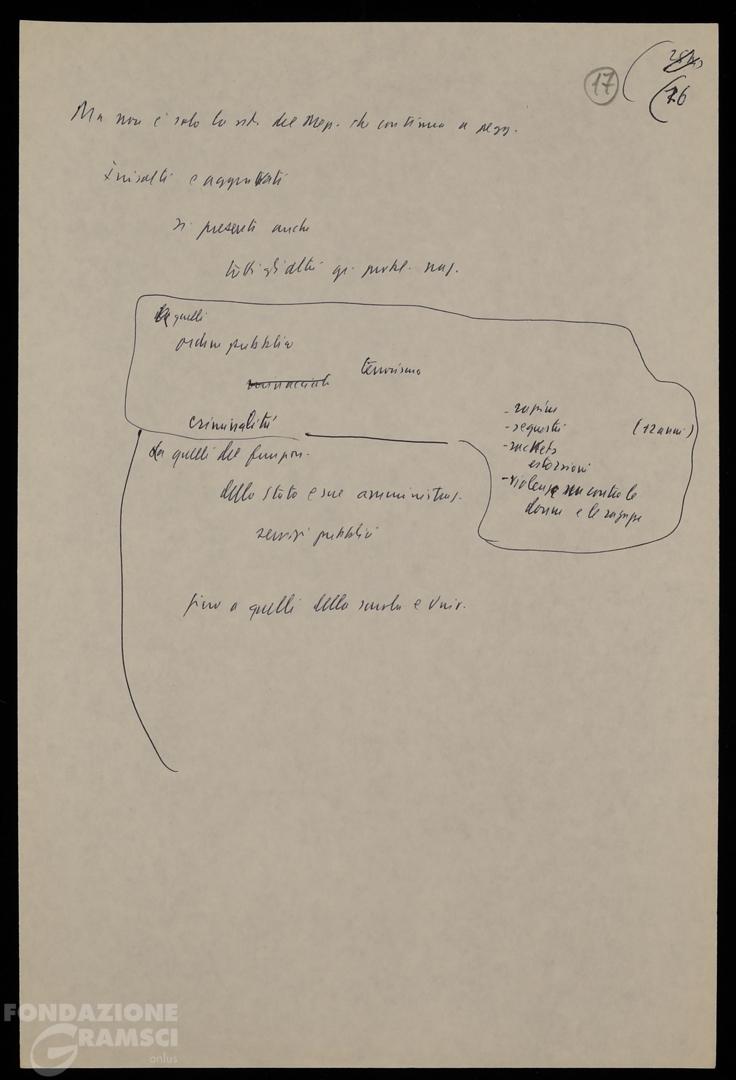 17
16
Ma non è solo la sit. del Mezz. che continua a pegg.
Irrisolti e aggravati
si presenti anche
tutti gli altri gr. probl. naz.
quelli
ordine pubblico
terrorismo
criminalità
- rapine
- sequestri (12 anni)
- rackets
estorsioni
- violenze contro le
donne e le ragazze
da quelli del funzion.
dello Stato e sue amministraz.
servizi pubblici
fino a quelli della scuola e Univ.
FONDAZIONE
GRAMSCI
onlus